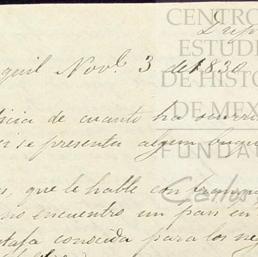 CENTRO
ESTUDI
DE HISTO
DE MEX
FUNDA
Carlos
quil Nov.e 3 de 1830
icia de cuanto ha ocurri
se presenta algun buqu
s, que le hable con franq
no encuentro un pais en
conocida para los neg